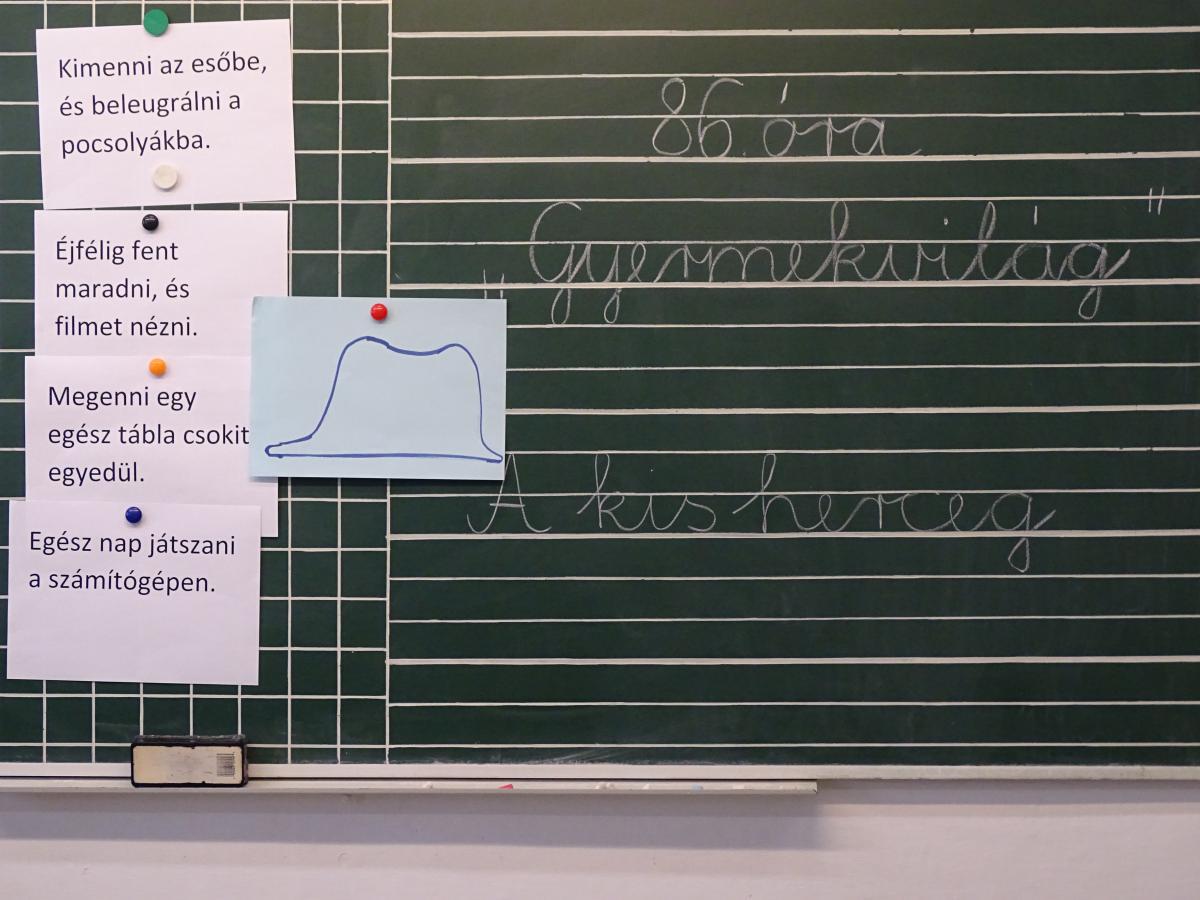 Kimenni az esőbe,
és beleugrálni a
pocsolyákba.
Éjfélig fent
maradni, és
filmet nézni.
Megenni egy
egész tábla csokit
egyedül.
Egész nap játszani
a számítógépen.
86. óra
„Gyermekvilág"
A kis herceg